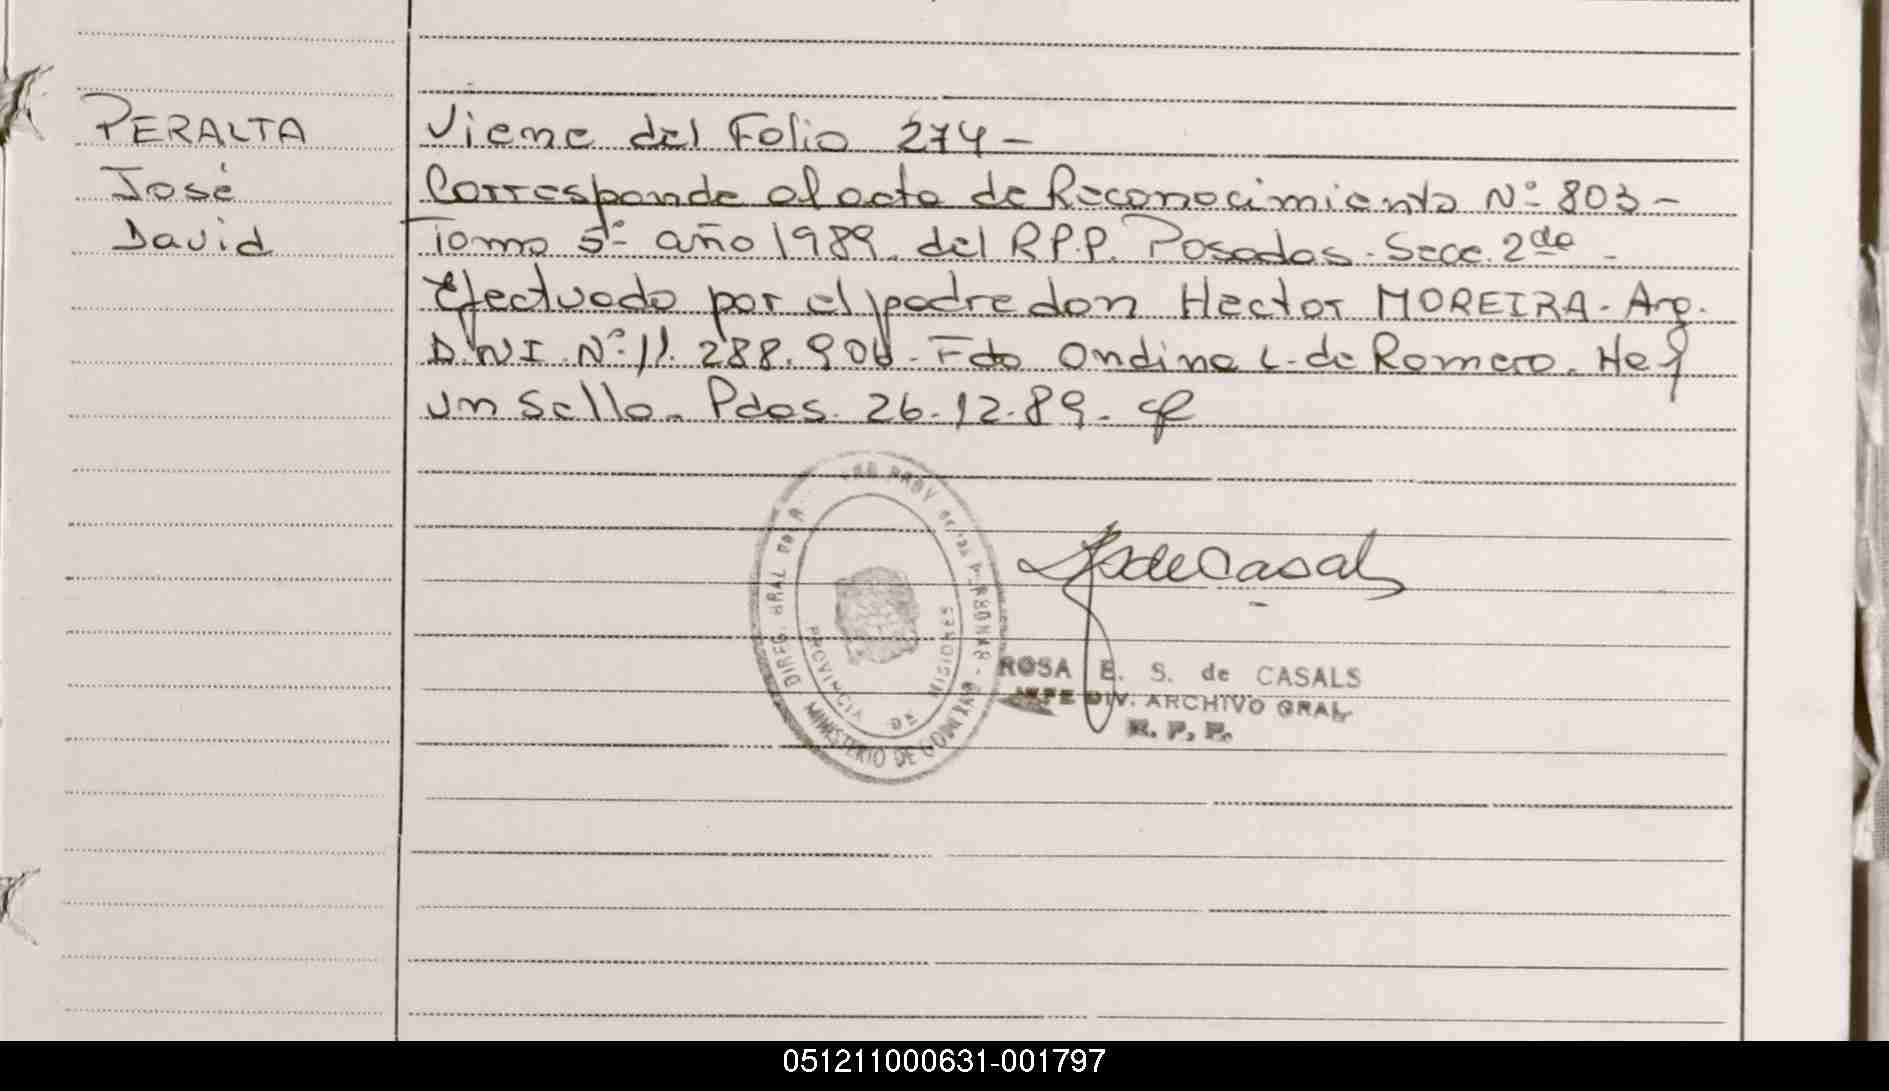 PERALTA
José
David
Viene del Folio 274-
Corresponde al acta de Reconocimiento Nº 803-
Tomo 5º año 1989. del R.P.P. Posadas. Secc. 2da -
Efectuado por el padre don Hector MOREIRA. Arg.
D.N.I. Nº 11.288.906. Fdo Ondina L. de Romero. Hay
un sello. Pdas. 26.12.89.
DIREG. GRAL DEL REG PROV DE LAS PERSONAS -
MINISTERIO DE GOBIERNO
PROVINCIA DE MISIONES
de Casals
ROSA E. S. de CASALS
JEFE DIV. ARCHIVO GRAL
R. P. P.
051211000631-001797